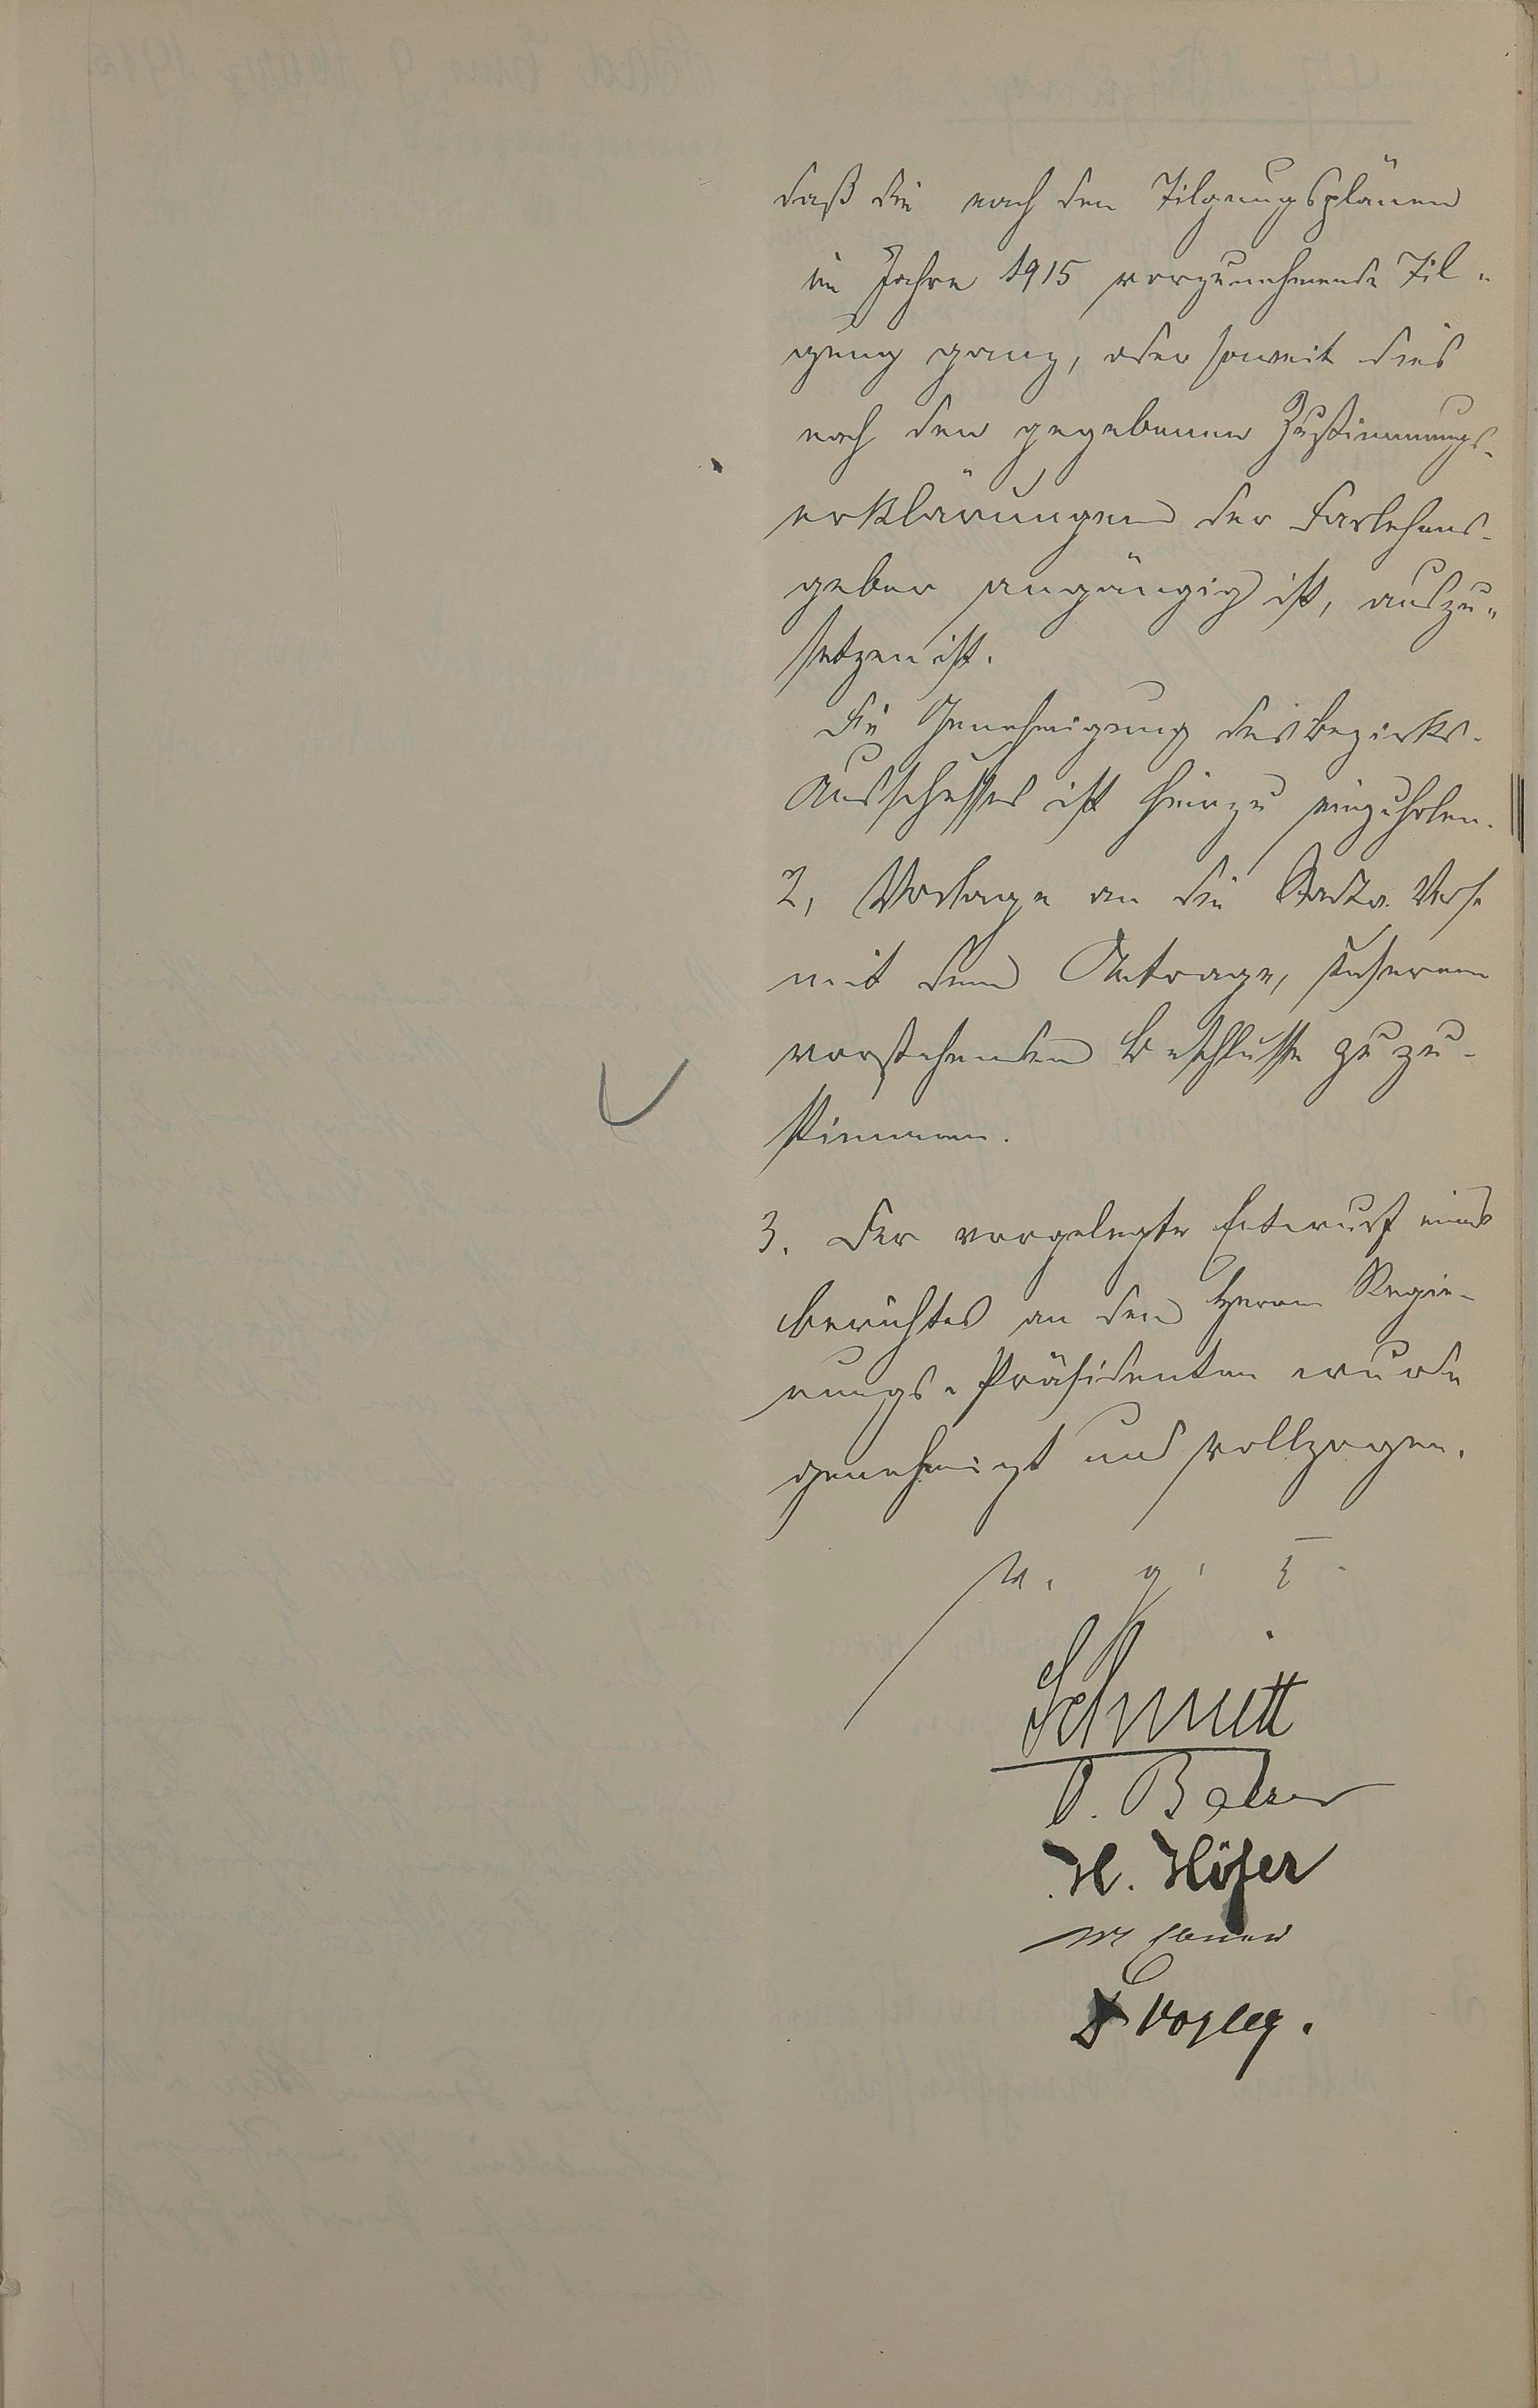 daß die nach den Tilgungsplänen
im Jahre 1915 vorzunehmende Til-
gung ganz, oder soweit dies
nach den gegebenen Zustimmungs-
erklärungen der Darlehens-
geber angängig ist, auszu-
setzen ist.
Die Genehmigung des Bezirks-
Ausschusses ist hierzu einzuholen.
2, Vorlage an die Stadtv. Vers.
mit dem Antrage, unserem
vorstehenden Beschlusse zuzu-
stimmen.
3. Der vorgelegte Entwurf eines
Berichtes an den Herrn Regie-
rungs-Präsidenten wurde
genehmigt und vollzogen.
v. g. u.
Schmitt
H. Höfer